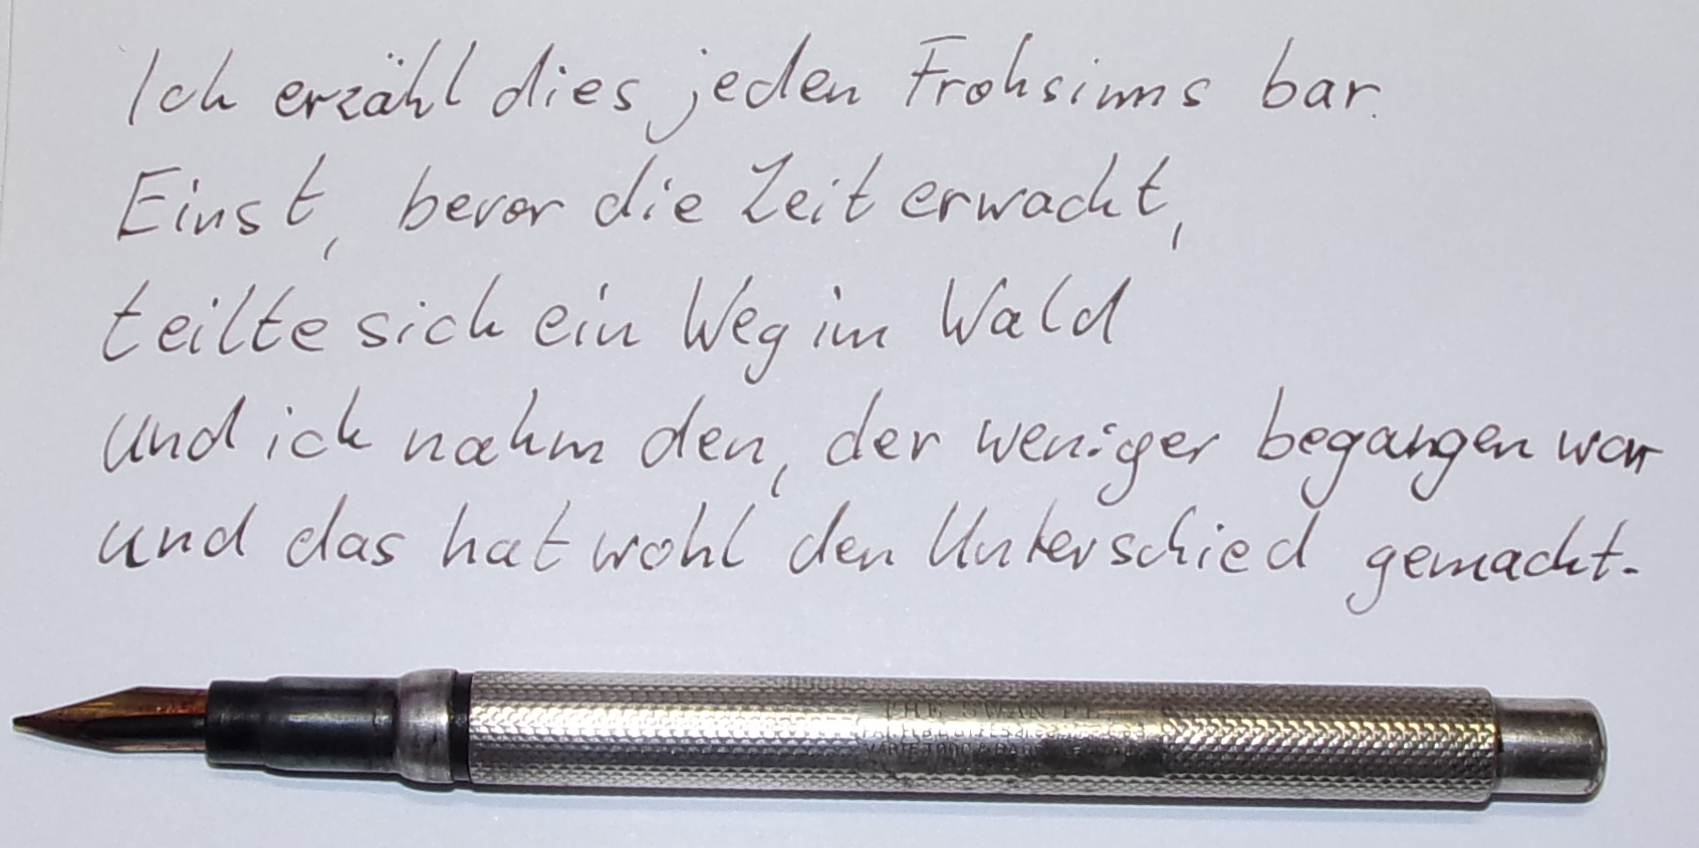 Ich erzähl dies jeden Frohsinns bar.
Einst, bevor die Zeit erwacht,
teilte sich ein Weg im Wald
und ich nahm den, der weniger begangen war
und das hat wohl den Unterschied gemacht.
THE SWAN
MABIE TODD &